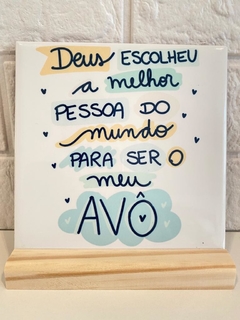 Deus ESCOLHEU
a melhor
PESSOA DO
mundo
PARA SER O
meu
AVÔ